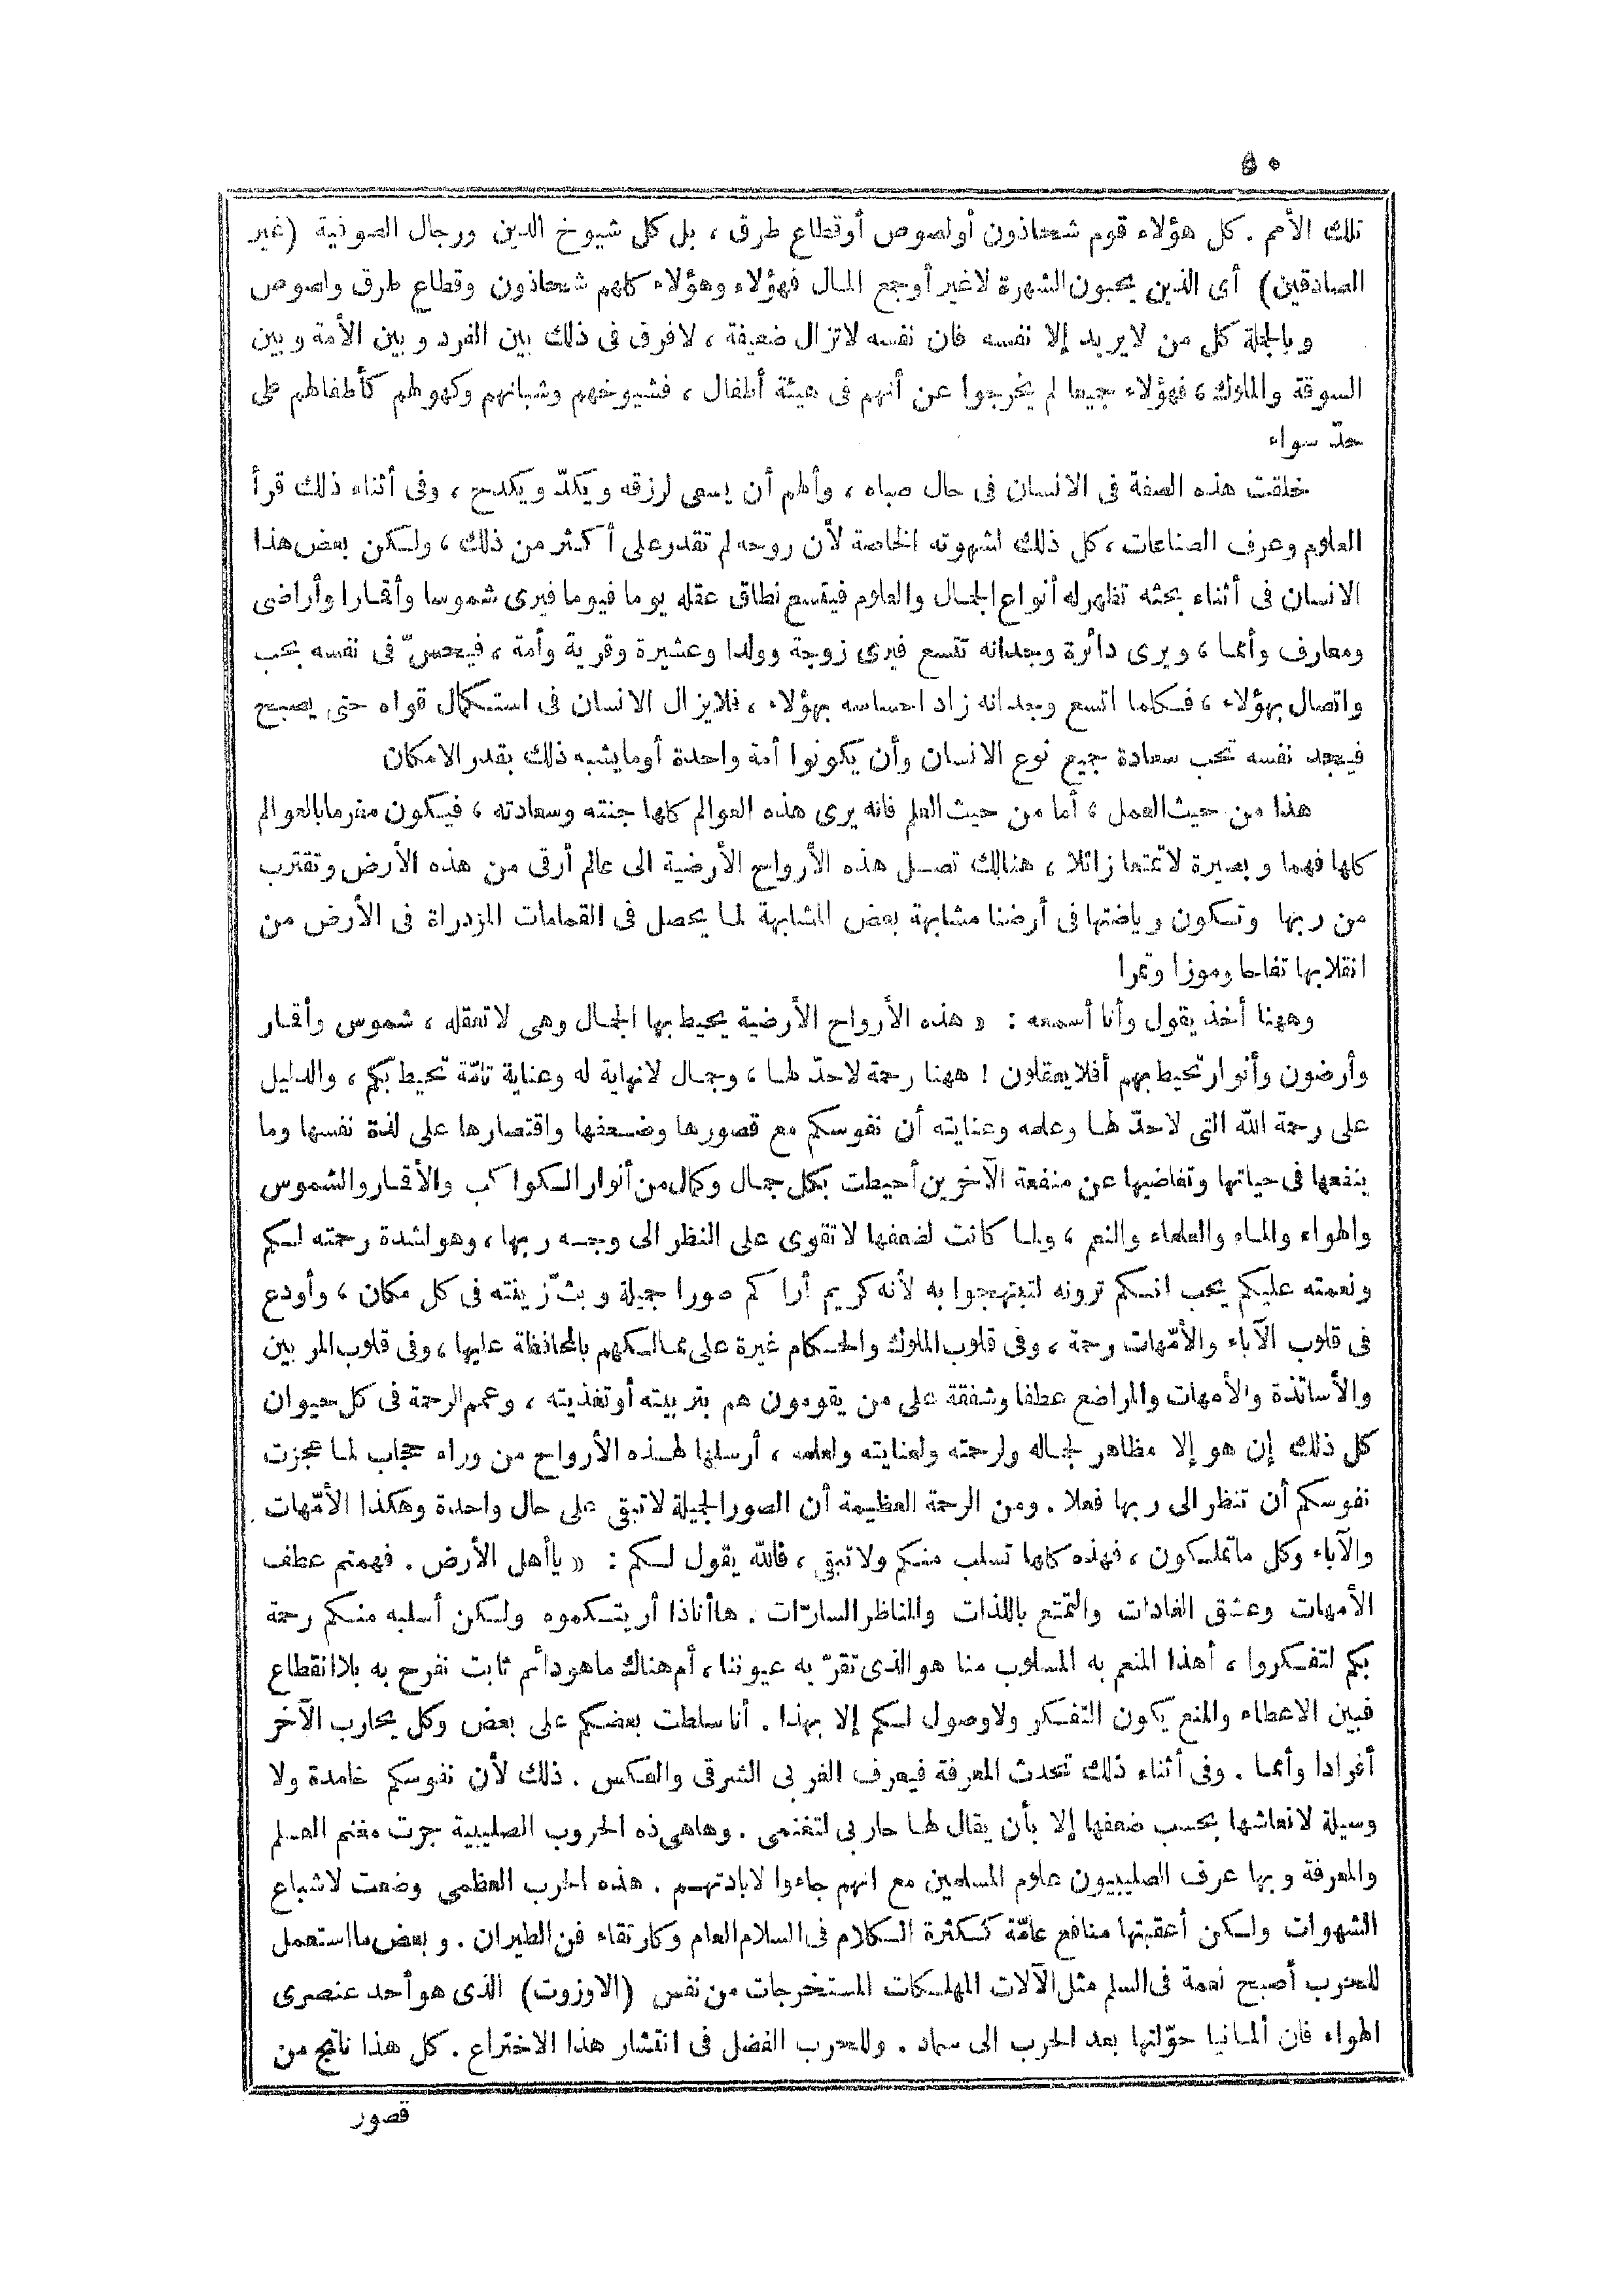 ٥٠
تلك الأمم . كل هؤلاء قوم شحاذون أو لصوص أو قطاع طرق ، بل كل شيوخ الدين ورجال الصوفية (غير
الصادقين) أى الذين يحبون الشهرة لاغير أو جمع المال فهؤلاء وهؤلاء كلهم شحاذون وقطاع طرق ولصوص
وبالجلة كل من لايريد إلا نفسه فان نفسه لاتزال ضعيفة ، لافرق فى ذلك بين الفرد وبين الأمة وبين
السوقة والملوك ، فهؤلاء جميعا لم يخرجوا عن أنهم فى هيئة أطفال ، فشيوخهم وشبانهم وكهولهم كأطفالهم على
حدّ سواء
خلقت هذه الصفة فى الانسان فى حال صباه ، وألهم أن يسعى لرزقه ويكدّ ويكدح ، وفى أثناء ذلك قرأ
العلوم وعرف الصناعات ، كل ذلك لشهوته الخاصة لأن روحه لم تقدر على أكثر من ذلك ، ولكن بعض هذا
الانسان فى أثناء بحثه تظهر له أنواع الجمال والعلوم فيتسع نطاق عقله يوما فيوما فيرى شموسا وأقمارا وأراضى
ومعارف وأمما ، ويرى دائرة وجدانه تتسع فيرى زوجة وولدا وعشيرة وقرية وأمة ، فيحسّ فى نفسه بحب
واتصال بهؤلاء ، فكلما اتسع وجدانه زاد احساسه بهؤلاء ، فلايزال الانسان فى استكمال قواه حتى يصبح
فيجد نفسه تحب سعادة جميع نوع الانسان وأن يكونوا أمة واحدة أو مايشبه ذلك بقدر الامكان
هذا من حيث العمل ، أما من حيث العلم فانه يرى هذه العوالم كلها جنته وسعادته ، فيكون مغرما بالعوالم
كلها فهما وبصيرة لاتمتعا زائلا ، هنالك تصل هذه الأرواح الأرضية الى عالم أرقى من هذه الأرض وتقترب
من ربها وتكون رياضتها فى أرضنا مشابهة بعض المشابهة لما يحصل فى القمامات المزدراة فى الأرض من
انقلابها تفاحا وموزا وتمرا
وههنا أخذ يقول وأنا أسمعه : « هذه الأرواح الأرضية يحيط بها الجمال وهى لاتعقله ، شموس وأقمار
وأرضون وأنوار تحيط بهم أفلا يعقلون ! ههنا رحمة لاحدّ لها ، وجمال لانهاية له وعناية تامّة تحيط بكم ، والدليل
على رحمة الله التى لاحدّ لها وعلمه وعنايته أن نفوسكم مع قصورها وضعفها واقتصارها على لذة نفسها وما
ينفعها فى حياتها وتغاضيها عن منفعة الآخرين أحيطت بكل جمال وكمال من أنوار الكواكب والأقمار والشموس
والهواء والماء والعلماء والنعم ، ولما كانت لضعفها لاتقوى على النظر الى وجه ربها ، وهو لشدة رحمته لكم
ونعمته عليكم يحب انكم ترونه لتبتهجوا به لأنه كريم أراكم صورا جميلة وبثّ زينته فى كل مكان ، وأودع
فى قلوب الآباء والأمّهات رحمة ، وفى قلوب الملوك والحكام غيرة على ممالكهم بالمحافظة عليها ، وفى قلوب المربين
والأساتذة والأمهات والمراضع عطفا وشفقة على من يقومون هم بتربيته أو تغذيته ، وعمم الرحمة فى كل حيوان
كل ذلك إن هو إلا مظاهر لجماله ولرحمته ولعنايته ولعلمه ، أرسلها لهذه الأرواح من وراء حجاب لما عجزت
نفوسكم أن تنظر الى ربها فعلا . ومن الرحمة العظيمة أن الصور الجميلة لاتبقى على حال واحدة وهكذا الأمّهات
والآباء وكل ماتملكون ، فهذه كلها تسلب منكم ولاتبقى ، فالله يقول لكم : « ياأهل الأرض . فهمتم عطف
الأمهات وعشق الغادات والتمتع باللذات والمناظر السارّات . هاأناذا أريتكموه ولكن أسلبه منكم رحمة
بكم لتفكروا ، أهذا المنعم به المسلوب منا هو الذى تقرّ به عيوننا ، أم هناك ماهو دائم ثابت نفرح به بلاانقطاع
فبين الاعطاء والمنع يكون التفكر ولاوصول لكم إلا بهذا . أنا سلطت بعضكم على بعض وكل يحارب الآخر
أفرادا وأمما . وفى أثناء ذلك تحدث المعرفة فيعرف الغربى الشرقى والعكس . ذلك لأن نفوسكم خامدة ولا
وسيلة لانعاشها بحسب ضعفها إلا بأن يقال لها حاربى لتغنمى . وهاهى ذه الحروب الصليبية جرت مغنم العلم
والمعرفة وبها عرف الصليبيون علوم المسلمين مع انهم جاءوا لابادتهم . هذه الحرب العظمى وضعت لاشباع
الشهوات ولكن أعقبتها منافع عامّة ككثرة الكلام فى السلام العام وكارتقاء فن الطيران . وبعض مااستعمل
للحرب أصبح نعمة فى السلم مثل الآلات المهلكات المستخرجات من نفس (الاوزوت) الذى هو أحد عنصرى
الهواء فان ألمانيا حوّلتها بعد الحرب الى سماد . وللحرب الفضل فى انتشار هذا الاختراع . كل هذا ناتج من
قصور